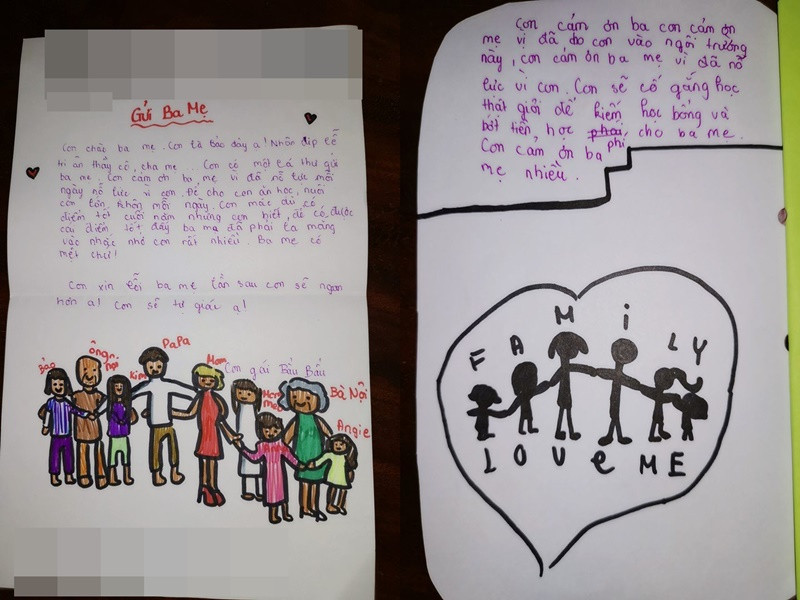 Gửi Ba Mẹ
Con chào ba mẹ. Con là Bảo đây ạ! Nhân dịp lễ
tri ân thầy cô, cha mẹ... Con có một lá thư gửi
ba mẹ. Con cảm ơn ba mẹ vì đã nỗ lực mỗi
ngày nỗ lực vì con. Để cho con ăn học, nuôi
con lớn khôn mỗi ngày. Con mặc dù có
điểm tốt cuối năm nhưng con biết, để có được
cái điểm tốt đấy ba mẹ đã phải la mắng
và nhắc nhở con rất nhiều. Ba mẹ có
mệt chứ!
Con xin lỗi ba mẹ lần sau con sẽ ngoan
hơn ạ! Con sẽ tự giác ạ!
Bảo
ông
Kim
PaPa
Mom
Con gái Bầu Bấu
Bà Nội
Angie
Con cảm ơn ba con cảm ơn
mẹ vì đã cho con vào ngôi trường
này, con cảm ơn ba mẹ vì đã nỗ
lực vì con. Con sẽ cố gắng học
thật giỏi để kiếm học bổng và
bớt tiền, học phí cho ba mẹ.
Con cảm ơn ba
mẹ nhiều.
FAMiLY
LOVe ME